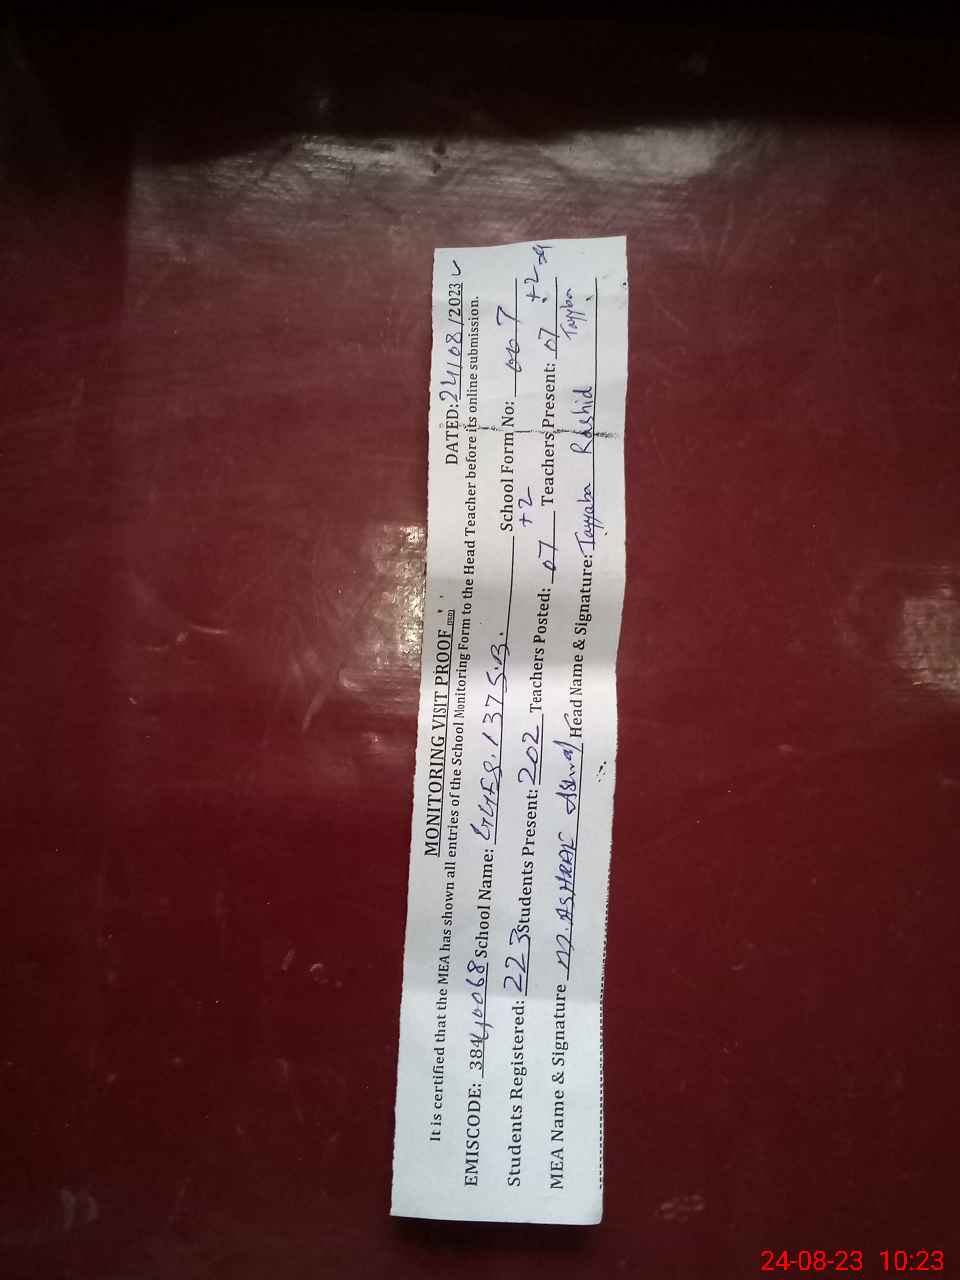 MONITORING VISIT PROOF
DATED: 24/08/2023
It is certified that the MEA has shown all entries of the School Monitoring Form to the Head Teacher before its online submission.
EMISCODE: 38440068 School Name: GGES.137 S.B. School Form No: 007
Students Registered: 223 Students Present: 202 Teachers Posted: 07 +2 Teachers Present: 07 +2
MEA Name & Signature M.ASHRAF Head Name & Signature: Tayyaba Rashid Tayyba
24-08-23 10:23